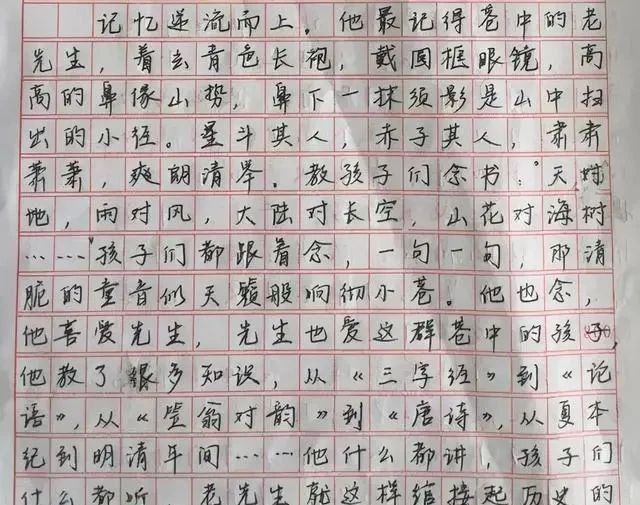 记忆逆流而上。他最记得苍中的老
先生，着去青色长袍，戴圆框眼镜，高
高的鼻像山势，鼻下一抹须影是山中扫
出的小径。星斗其人，赤子其人，肃肃
萧萧，爽朗清举．教孩子们念书："天对
地，雨对风，大陆对长空，山花对海树
……"孩子们都跟着念，一句一句，那清
脆的童音似天籁般响彻小苍。他也念，
他喜爱先生，先生也爱这群苍中的孩子，
他教了很多知识，从《三字经》到《论
语》，从《笠翁对韵》到《唐诗》，从夏本
纪到明清年间……他什么都讲，孩子们
什么都听。老先生就这样绾接起历史的